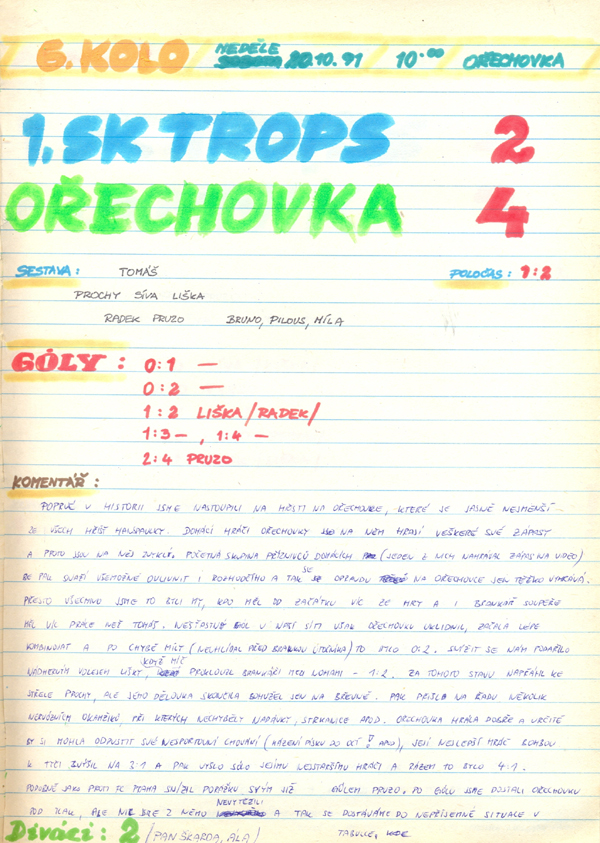 6. KOLO NEDĚLE 20.10.91 10.00 OŘECHOVKA
1. SK TROPS 2
OŘECHOVKA 4
SESTAVA: TOMÁŠ POLOČAS: 1:2
PROCHY SÍVA LIŠKA
RADEK PRUZO BRUNO, PILOUS, MÍLA
GÓLY: 0:1 —
0:2 —
1:2 LIŠKA /RADEK/
1:3 — , 1:4 —
2:4 PRUZO
KOMENTÁŘ:
POPRVÉ V HISTORII JSME NASTOUPILI NA HŘIŠTI NA OŘECHOVCE, KTERÉ JE JASNĚ NEJMENŠÍ
ZE VŠECH HŘIŠŤ HANSPAULKY. DOMÁCÍ HRÁČI OŘECHOVKY NA NĚM HRAJÍ VEŠKERÉ SVÉ ZÁPASY
A PROTO JSOU NA NĚJ ZVYKLÍ. POČETNÁ SKUPINA PŘÍZNIVCŮ DOMÁCÍCH (JEDEN Z NICH NAHRÁVAL ZÁPAS NA VIDEO)
SE PAK SNAŽÍ VŠEMOŽNĚ OVLIVNIT I ROZHODČÍHO A TAK SE OPRAVDU NA OŘECHOVCE JEN TĚŽKO VYHRÁVÁ.
PŘESTO VŠECHNO JSME TO BYLI MY, KDO MĚL OD ZAČÁTKU VÍC ZE HRY A I BRANKÁŘ SOUPEŘE
MĚL VÍC PRÁCE NEŽ TOMÁŠ. NEŠŤASTNÝ GÓL V NAŠÍ SÍTI VŠAK OŘECHOVKU UKLIDNIL, ZAČALA LÉPE
KOMBINOVAT A PO CHYBĚ MÍLY (NEUHLÍDAL PŘED BRANKOU ÚTOČNÍKA) TO BYLO 0:2. SNÍŽIT SE NÁM PODAŘILO
NÁDHERNÝM VOLEJEM LIŠKY, KDYŽ MÍČ PROKLOUZL BRANKÁŘI POD NOHAMA - 1:2. ZA TOHOTO STAVU NAPŘÁHL KE
STŘELE PROCHY, ALE JEHO DĚLOVKA SKONČILA BOHUŽEL JEN NA BŘEVNĚ. PAK PŘIŠLO NA ŘADU NĚKOLIK
NERVÓZNÍCH OKAMŽIKŮ, PŘI KTERÝCH NECHYBĚLY NADÁVKY, STRKANICE APOD. OŘECHOVKA HRÁLA DOBŘE A URČITĚ
BY SI MOHLA ODPUSTIT SVÉ NESPORTOVNÍ CHOVÁNÍ (HÁZENÍ PÍSKU DO OČÍ! APOD), JEJÍ NEJLEPŠÍ HRÁČ BOMBOU
K TYČI ZVÝŠIL NA 3:1 A PAK VYŠLO SÓLO JEJÍMU NEJSTARŠÍMU HRÁČI A RÁZEM TO BYLO 4:1.
PODOBNĚ JAKO PROTI FC PRAHA SNÍŽIL PORÁŽKU SVÝM JIŽ GÓLEM PRUZO. PO GÓLU JSME DOSTALI OŘECHOVKU
POD TLAK, ALE NIC JSME Z NĚHO NEVYTĚŽILI A TAK SE DOSTÁVÁME DO NEPŘÍJEMNÉ SITUACE V
TABULCE.
Diváci: 2 (PAN ŠKARDA, ALA)